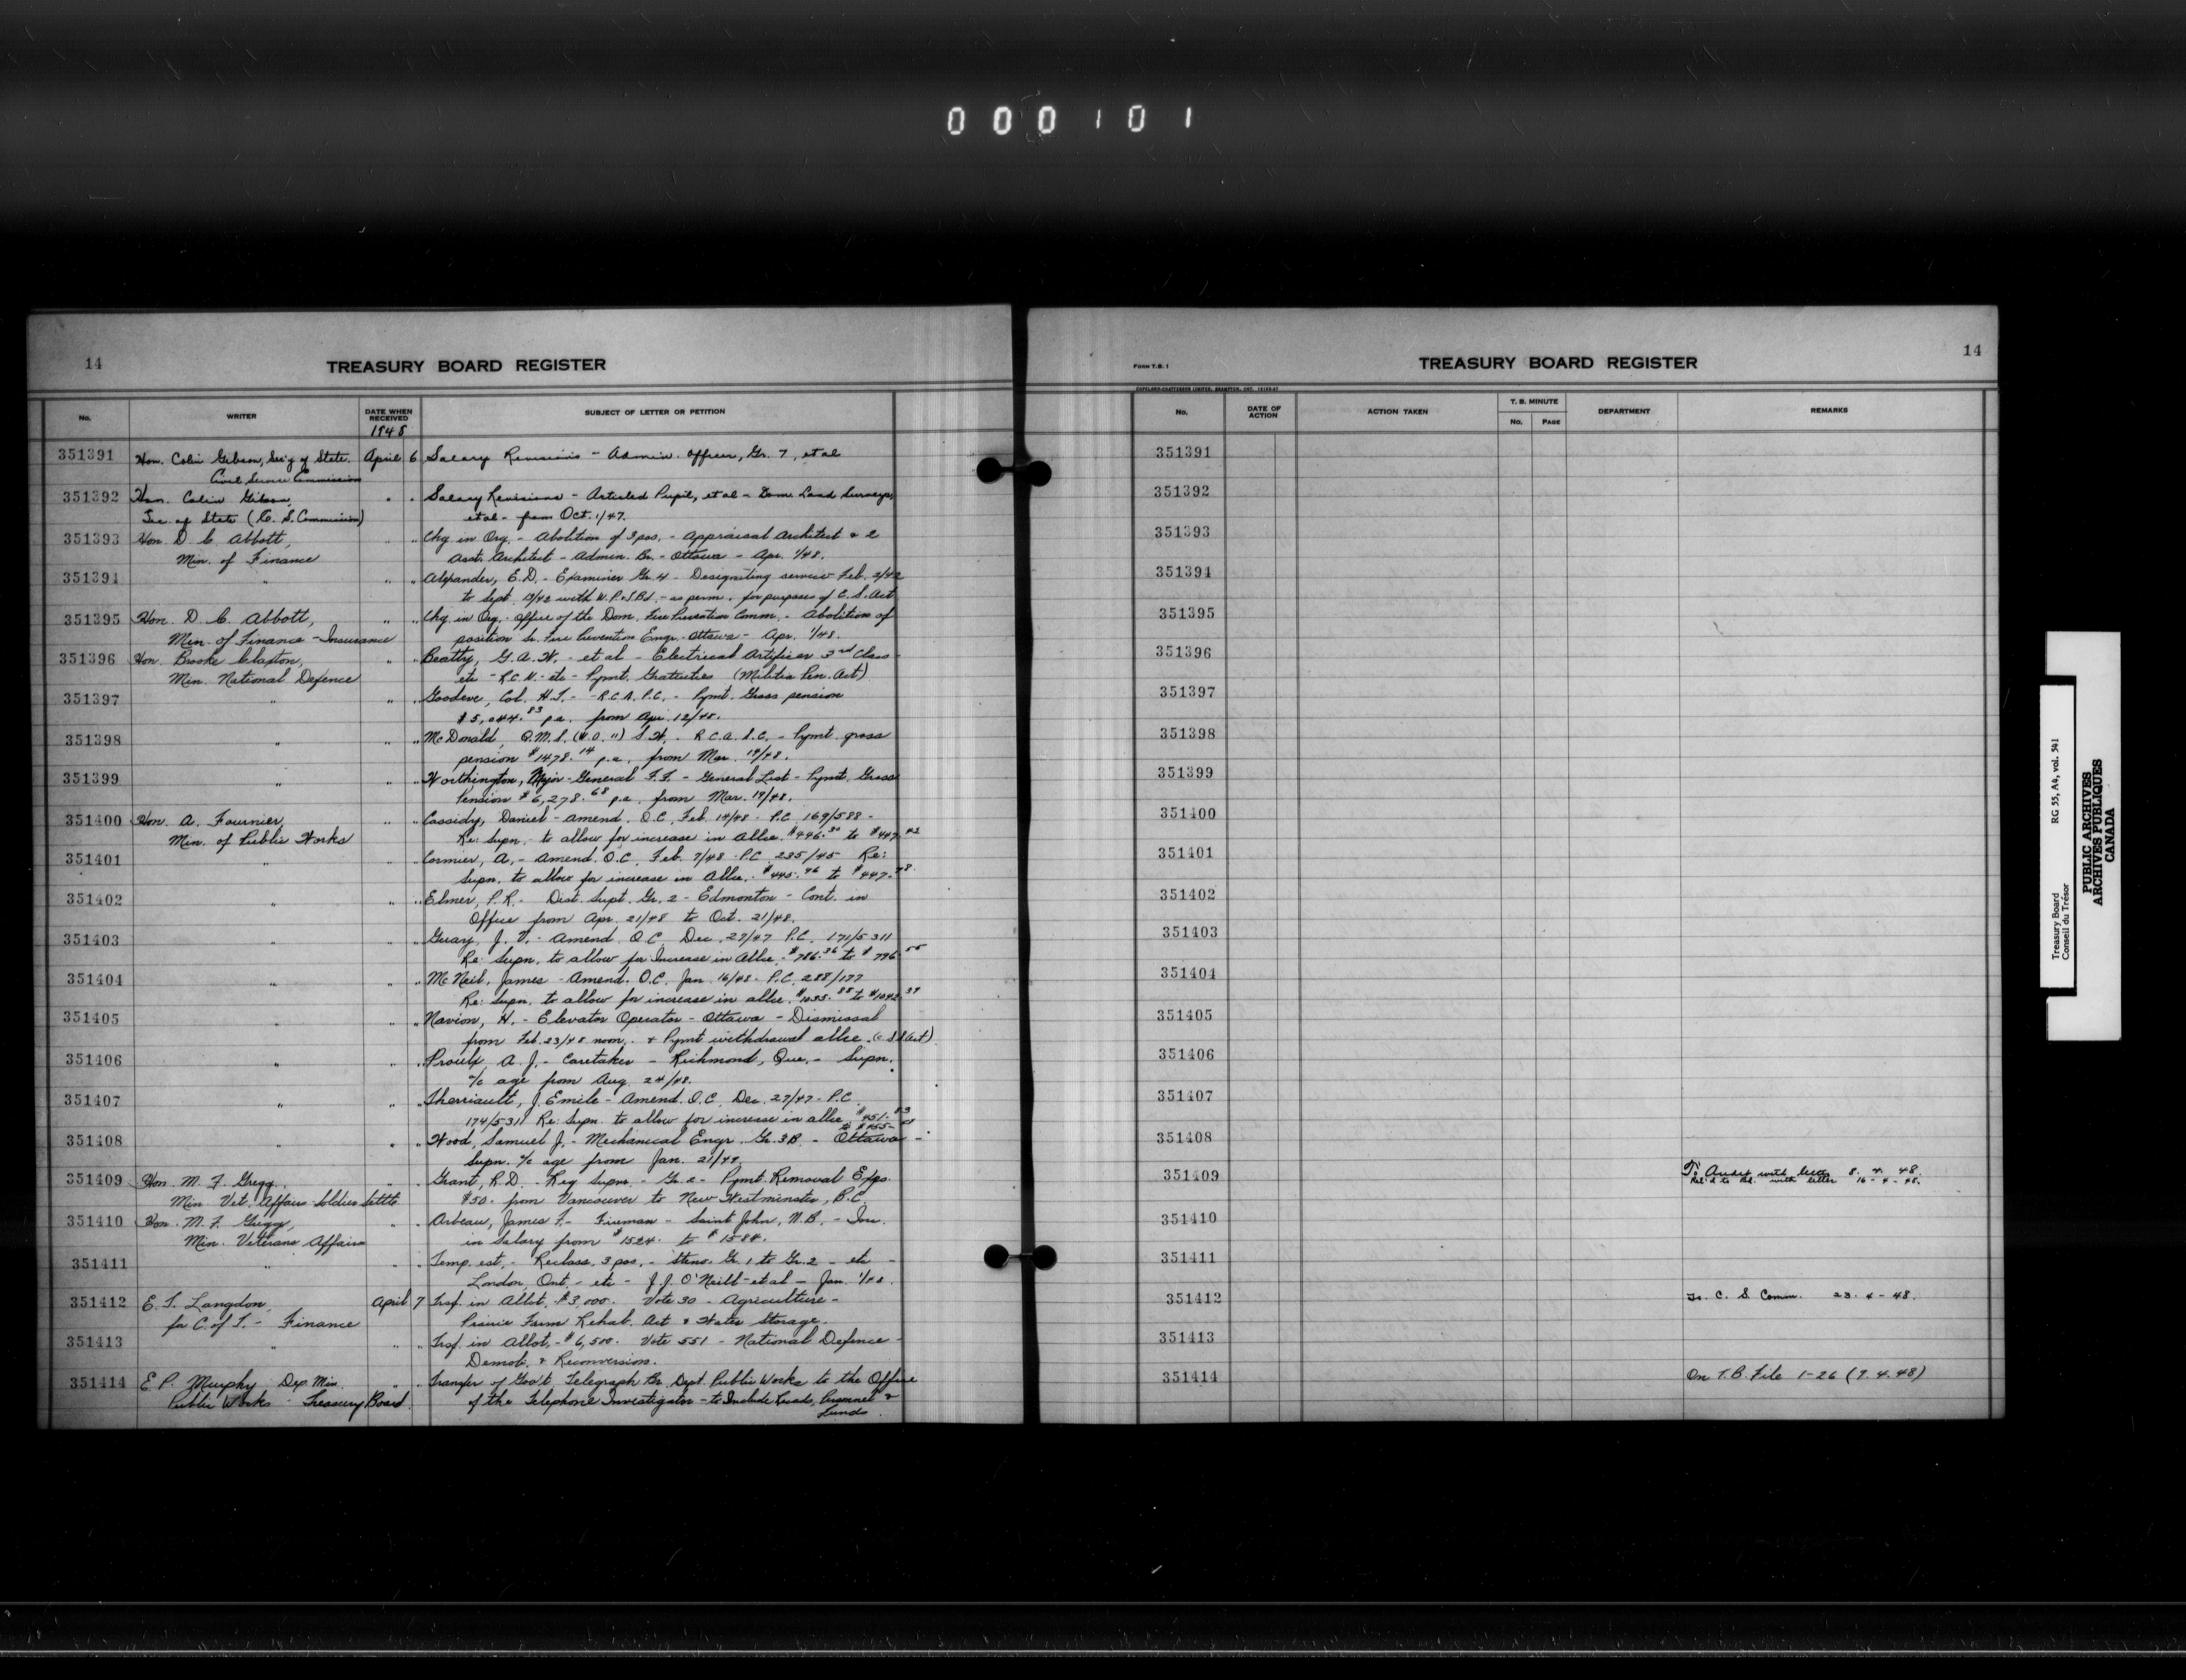 000101
14
TREASURY BOARD REGISTER
No. WRITER DATE WHEN RECEIVED SUBJECT OF LETTER OR PETITION
1948
351391 Hon. Colin Gibson, Sec'y of State. April 6 Salary Revisions - Admin. Officer, Gr. 7, et al
Civil Service Commission
351392 Hon. Colin Gibson, " " Salary Revisions - Articled Pupil, et al - Dom. Land Surveys,
Sec. of State (C. S. Commission) et al - from Oct. 1/47.
351393 Hon. D. C. Abbott, " " Chg. in Org. - Abolition of 3 pos. - Appraisal Architect & 2
Min. of Finance Asst. Architect - Admin. Br. - Ottawa - Apr. 1/48.
351394 " " " Alexander, E.D. - Examiner Gr. 4 - Designating service Feb. 2/42
to Sept. /42 with W.P. & T.Bd. - as perm. for purposes of C. S. Act
351395 Hon. D. C. Abbott, " " Chg. in Org. - Office of the Dom. Fire Prevention Comm. - Abolition of
Min. of Finance - Insurance position Sr. Fire Prevention Engr. - Ottawa - Apr. 1/48.
351396 Hon. Brooke Claxton, " " Beatty, G.A.W. - et al - Electrical Artificer 3rd Class -
Min. National Defence etc - R.C.N. - etc - Pymt. Gratuities (Militia Pen. Act)
351397 " " " Goodeve, Col. H.T. - R.C.A.P.C. - Pymt. Gross pension
$5,044.83 p.a. from Apr. 12/48.
351398 " " " McDonald, Q.M.S. (W.O. "") S.W. - R.C.A.S.C. - Pymt. gross
pension $1478.14 p.a. from Mar. 19/48.
351399 " " " Worthington, Major-General F.F. - General List - Pymt. Gross
Pension $6,278.68 p.a. from Mar. 19/48.
351400 Hon. A. Fournier, " " Cassidy, Daniel - Amend. O.C. Feb. 14/48 - P.C. 169/588 -
Min. of Public Works Re: Supn. - to allow for increase in Allce. $446.30 to $447.42
351401 " " " Cormier, A. - Amend. O.C. Feb. 7/48 - P.C. 235/45 Re:
Supn. to allow for increase in Allce. - $445.96 to $447.78
351402 " " " Elmer, P.R. - Dist. Supt. Gr. 2 - Edmonton - Cont. in
Office from Apr. 21/48 to Oct. 21/48.
351403 " " " Guay, J. V. - Amend. O.C. Dec. 27/47 P.C. 171/5311
Re: Supn. to allow for Increase in Allce. - $786.36 to $796.55
351404 " " " McNeil, James - Amend. O.C. Jan. 16/48 - P.C. 288/177
Re: Supn. to allow for increase in allce. $1035.88 to $1042.39
351405 " " " Navion, H. - Elevator Operator - Ottawa - Dismissal
from Feb. 23/48 noon, - & Pymt withdrawal allce. (C S S Act)
351406 " " " Proulx, A. J. - Caretaker - Richmond, Que. - Supn.
a/c age from Aug. 24/48.
351407 " " " Therriault, J. Emile - Amend. O.C. Dec. 27/47 - P.C.
174/5311 Re: Supn. to allow for increase in allce. $451.83
to $455.
351408 " " " Wood, Samuel J. - Mechanical Engr. Gr. 3B. - Ottawa -
Supn. a/c age from Jan. 21/49.
351409 Hon. M. F. Gregg, " " Grant, R.D. - Reg Supvr. - Gr. 2 - Pymt. Removal Exps.
Min. Vet. Affairs Soldier Settlt. $50. from Vancouver to New Westminster, B.C.
351410 Hon. M. F. Gregg, " " Arbeau, James F. - Fireman - Saint John, N.B. - Inc.
Min. Veterans Affairs in salary from $1524. to $1584.
351411 " " " Temp. est. - Reclass. 3 pos. - Steno. Gr. 1 to Gr. 2 - etc -
London, Ont. - etc - J.J. O'Neill - et al - Jan. 1/48.
351412 E. T. Langdon, April 7 Trsf. in Allot. $3,000. Vote 30 - Agriculture -
for C. of T. - Finance Prairie Farm Rehab. Act & Water Storage.
351413 " " " Trsf. in Allot. - $6,500. Vote 551 - National Defence -
Demob. & Reconversion.
351414 E. P. Murphy Dep. Min. " " Transfer of Gov't Telegraph Br. Dept. Public Works to the Office
Public Works - Treasury Board. of the Telephone Investigator - to Include Personnel &
Funds.
FORM T.B. 1
TREASURY BOARD REGISTER
14
No. DATE OF ACTION ACTION TAKEN T. B. MINUTE No. PAGE DEPARTMENT REMARKS
351391
351392
351393
351394
351395
351396
351397
351398
351399
351400
351401
351402
351403
351404
351405
351406
351407
351408
351409 To Audit with letter 8. 4. 48.
Ret'd to Bd. with letter 16 - 4 - 48.
351410
351411
351412 To C. S. Comm. 23. 4 - 48.
351413
351414 On T.B. File 1-26 (7.4.48)
Treasury Board RG 55, A4, vol. 541
Conseil du Trésor
PUBLIC ARCHIVES
ARCHIVES PUBLIQUES
CANADA